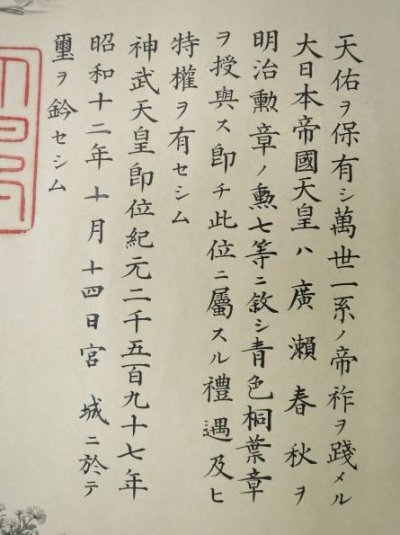 天佑ヲ保有シ萬世一系ノ帝祚ヲ踐メル
大日本帝國天皇ハ廣瀨春秋ヲ
明治勳章ノ勳七等ニ敍シ青色桐葉章
ヲ授與ス卽チ此位ニ屬スル禮遇及ヒ
特權ヲ有セシム
神武天皇卽位紀元二千五百九十七年
昭和十二年十月十四日宮城ニ於テ
璽ヲ鈐セシム